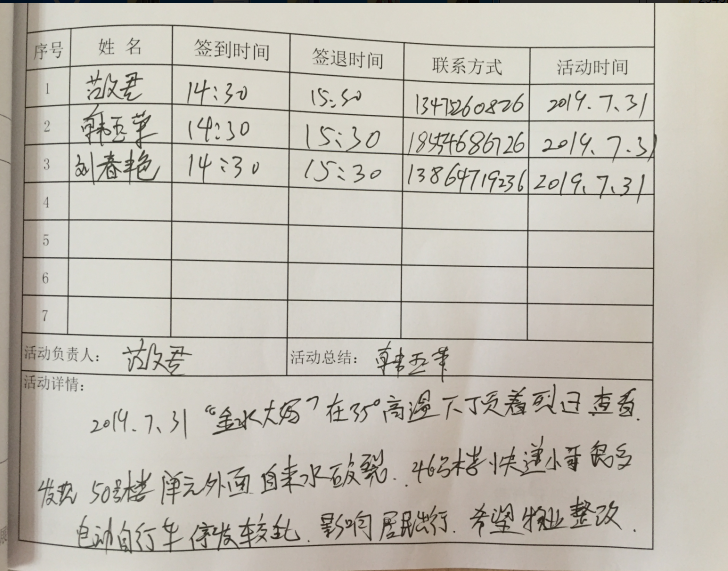 序号 姓 名 签到时间 签退时间 联系方式 活动时间
1 范文君 14:30 15:30 13475260826 2019.7.31
2 韩玉苹 14:30 15:30 18554686726 2019.7.31
3 刘春艳 14:30 15:30 13864719236 2019.7.31
4
5
6
7
活动负责人: 范文君 活动总结: 韩玉苹
活动详情:
2019.7.31 "金水大妈"在35°高温下顶着烈日查看.
发现50号楼单元外面自来水破裂.46号楼快递小哥
电动自行车停放较乱.影响居民出行.希望物业整改.